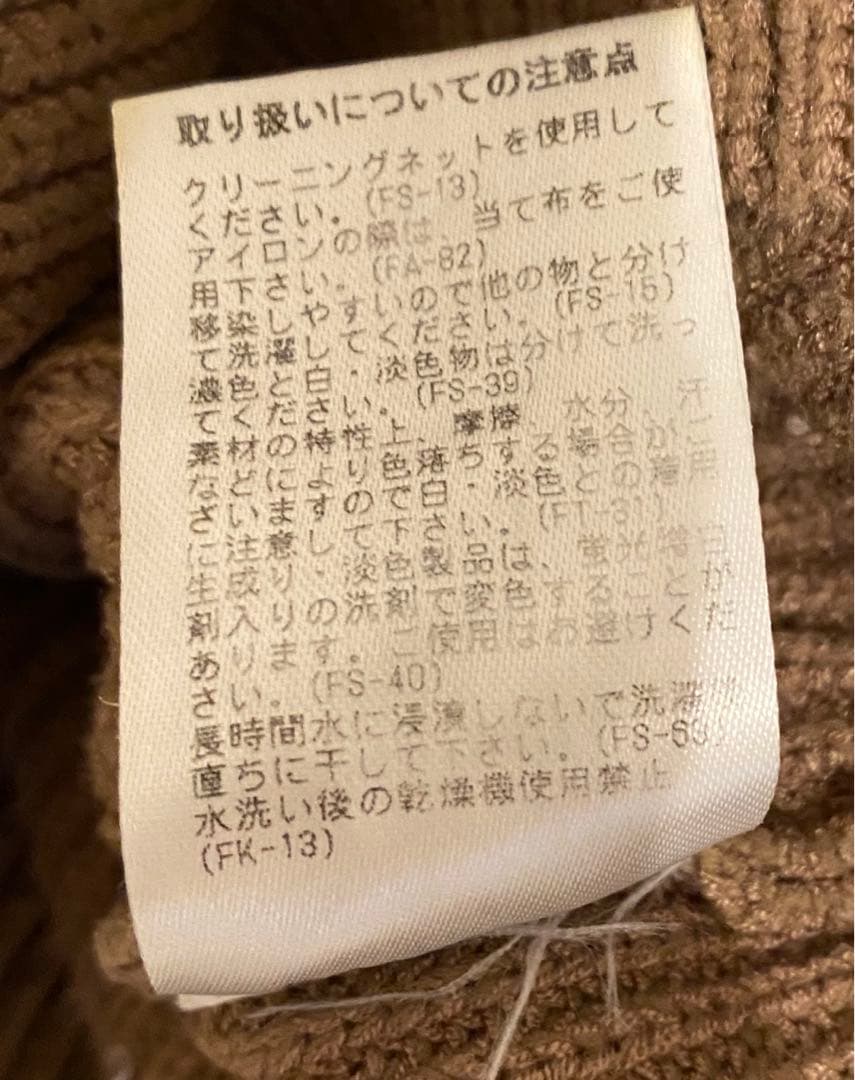 取り扱いについての注意点
クリーニングネットを使用して
ください。(FS-13)
アイロンの際は、当て布をご使
用下さい。(FA-82)
移染しやすいので他の物と分け
て洗濯してください。(FS-15)
濃色と白・淡色物は分けて洗っ
てください。(FS-39)
素材の特性上、摩擦、水分、汗
などにより色落ちする場合がご
ざいますので白・淡色との着用
に注意して下さい。(FT-31)
生成り・淡色製品は、蛍光増白
剤入りの洗剤で変色することが
あります。ご使用はお避けくだ
さい。(FS-40)
長時間水に浸漬しないで洗濯後
直ちに干して下さい。
水洗い後の乾燥機使用禁止
(FK-13)